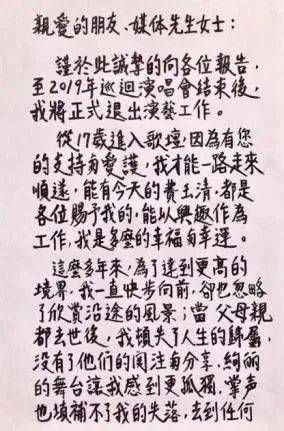 親愛的朋友、媒体先生女士：
謹於此誠摯的向各位報告，
至2019年巡迴演唱會結束後，
我將正式退出演藝工作。
從17歲進入歌壇，因為有您
的支持与愛護，我才能一路走來
順遂，能有今天的費玉清，都是
各位賜予我的，能以興趣作為
工作，我是多麼的幸福与幸運。
這麼多年來，為了達到更高的
境界，我一直快步向前，卻也忽略
了欣賞沿途的風景；當父母親
都去世後，我頓失了人生的歸屬，
沒有了他們的関注与分享，絢麗
的舞台讓我感到更孤獨，掌声
也填補不了我的失落，去到任何